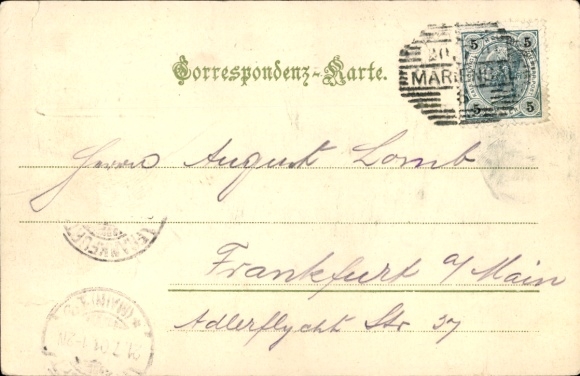 Correspondenz-Karte.
5 5
MARIENBAD
5 5
Herrn August Lomb
Frankfurt a/Main
Adlerflycht Str 37